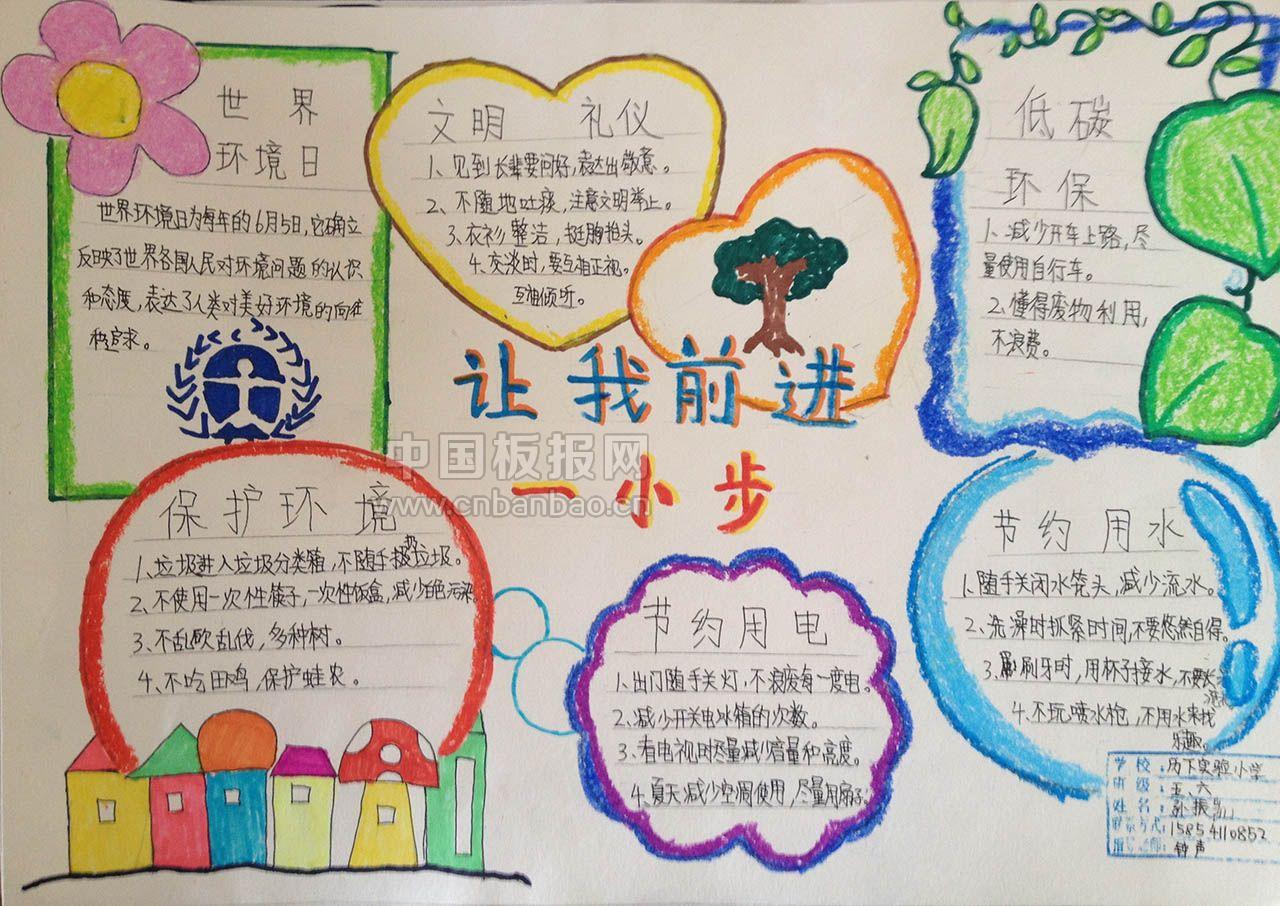 世 界
环境日
世界环境日为每年的6月5日,它确立
反映了世界各国人民对环境问题的认识
和态度,表达了人类对美好环境的向往
和追求。
文明 礼仪
1、见到长辈要问好,表达出敬意。
2、不随地吐痰,注意文明举止。
3、衣衫整洁,挺胸抬头。
4、交谈时,要互相正视。
互相倾听。
低碳
环保
1、减少开车上路,尽
量使用自行车。
2、懂得废物利用,
不浪费。
让我前进
一小步
中国板报网
www.cnbanbao.cn
保护环境
1、垃圾进入垃圾分类箱,不随手扔垃圾。
2、不使用一次性筷子,一次性饭盒,减少白色污染
3、不乱砍乱伐,多种树。
4、不吃田鸡,保护蛙农。
节约用电
1、出门随手关灯,不浪费每一度电。
2、减少开关电冰箱的次数。
3、看电视时尽量减少音量和亮度。
4、夏天减少空调使用,尽量用扇子。
节约用水
1、随手关闭水笼头,减少流水。
2、洗澡时抓紧时间,不要悠然自得。
3、刷牙时,用杯子接水,不要
4、不玩喷水枪,不用水来找
乐趣。
学校:历下实验小学
班级:五、六
姓名:孙振
联系方式:15854110852
钟声